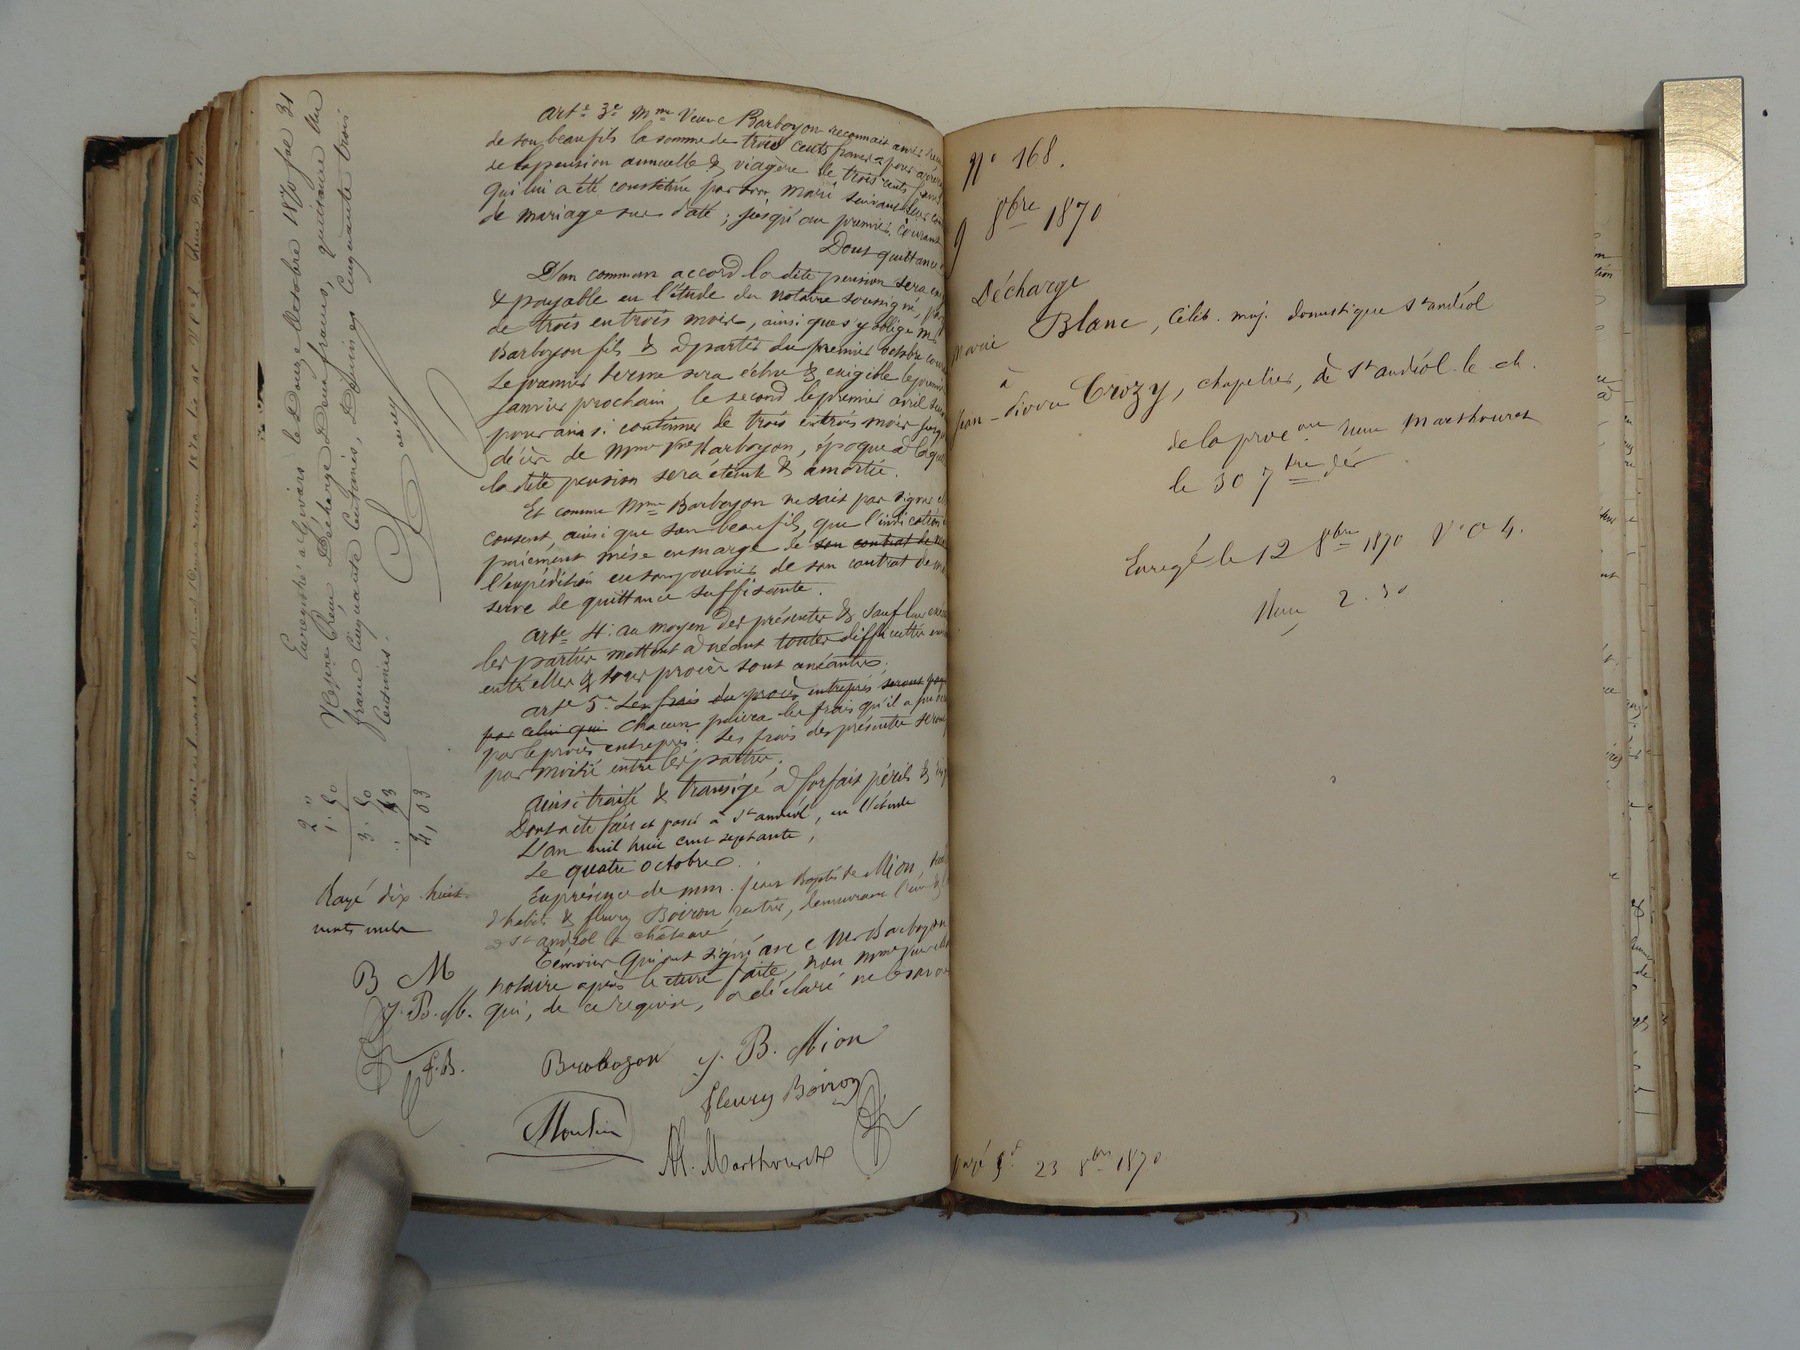 Enregistré à Givors le Douze Octobre 1870 folio 31
Reçu Décharge Deux francs, quittance Un
franc Cinquante Centimes, Décimes Cinquante trois
Centimes.
2 "
1. 50
3. 50
" 53
4,03
Rayé dix-huit
mots nuls
B M
J. B. M.
F. B.
arte 3e Mme Veuve Barboyon reconnait avoir
de son beau fils la somme de trois cents francs pour
de la pension annuelle & viagère de trois cents francs
qui lui a été constituée par son mari suivant leur
de mariage sus daté ; jusqu'au premier courant
Dont quittance
D'un commun accord la dite pension sera
& payable en l'étude du notaire soussigné,
de trois en trois mois, ainsi que s'y oblige Mr
Barboyon fils & à partir du premier octobre
Le premier terme sera échu & exigible le premier
Janvier prochain, le second le premier avril
pour ainsi continuer de trois en trois mois
décès de Mme Vve Barboyon, époque à
la dite pension sera éteinte & amortie.
Et comme Mme Barboyon ne sait pas signer
consent, ainsi que son beau fils, que l'indication
paiement mise en marge de son contrat de
l'expédition en son pouvoir de son contrat de
serve de quittance suffisante.
arte 4: au moyen des présentes & sauf leur
les parties mettent à néant toutes difficultés
entr'elles & tous procès sont anéantis.
arte 5e Les frais du procès entrepris seront
par celui qui Chacun paiera les frais qu'il a
par le procès entrepris. Les frais des présentes seront
par moitié entre les parties;
Ainsi traité & transigé à forfait périls &
Dont acte fait et passé à St andéol, en l'étude
L'an mil huit cent septante,
Le quatre octobre.
En présence de mm. jean Baptiste Mion,
d'habits & fleury Boiron, demeurant
à St andéol le château
Témoins qui ont signé avec Mr Barboyon
notaire après lecture faite, non Mme
qui, de ce requise, a déclaré ne le savoir
Barboyon J. B. Mion
fleury Boiron
Moulin
M. Marthouret
No 168.
9 8bre 1870
Décharge
Marie Blanc, Célib. maj. domestique St andéol
à
Jean-Pierre Crozy, chapelier, de St andéol le ch.
de la procon reçue Marthouret
le 30 7bre der
Enregé le 12 8bre 1870 Vo C 4.
Reçu 2.30
23 8bre 1870